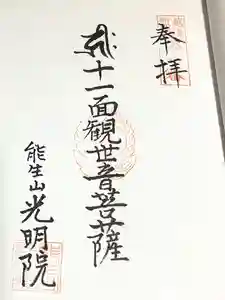 奉拝
十一面観世音菩薩
能生山光明院